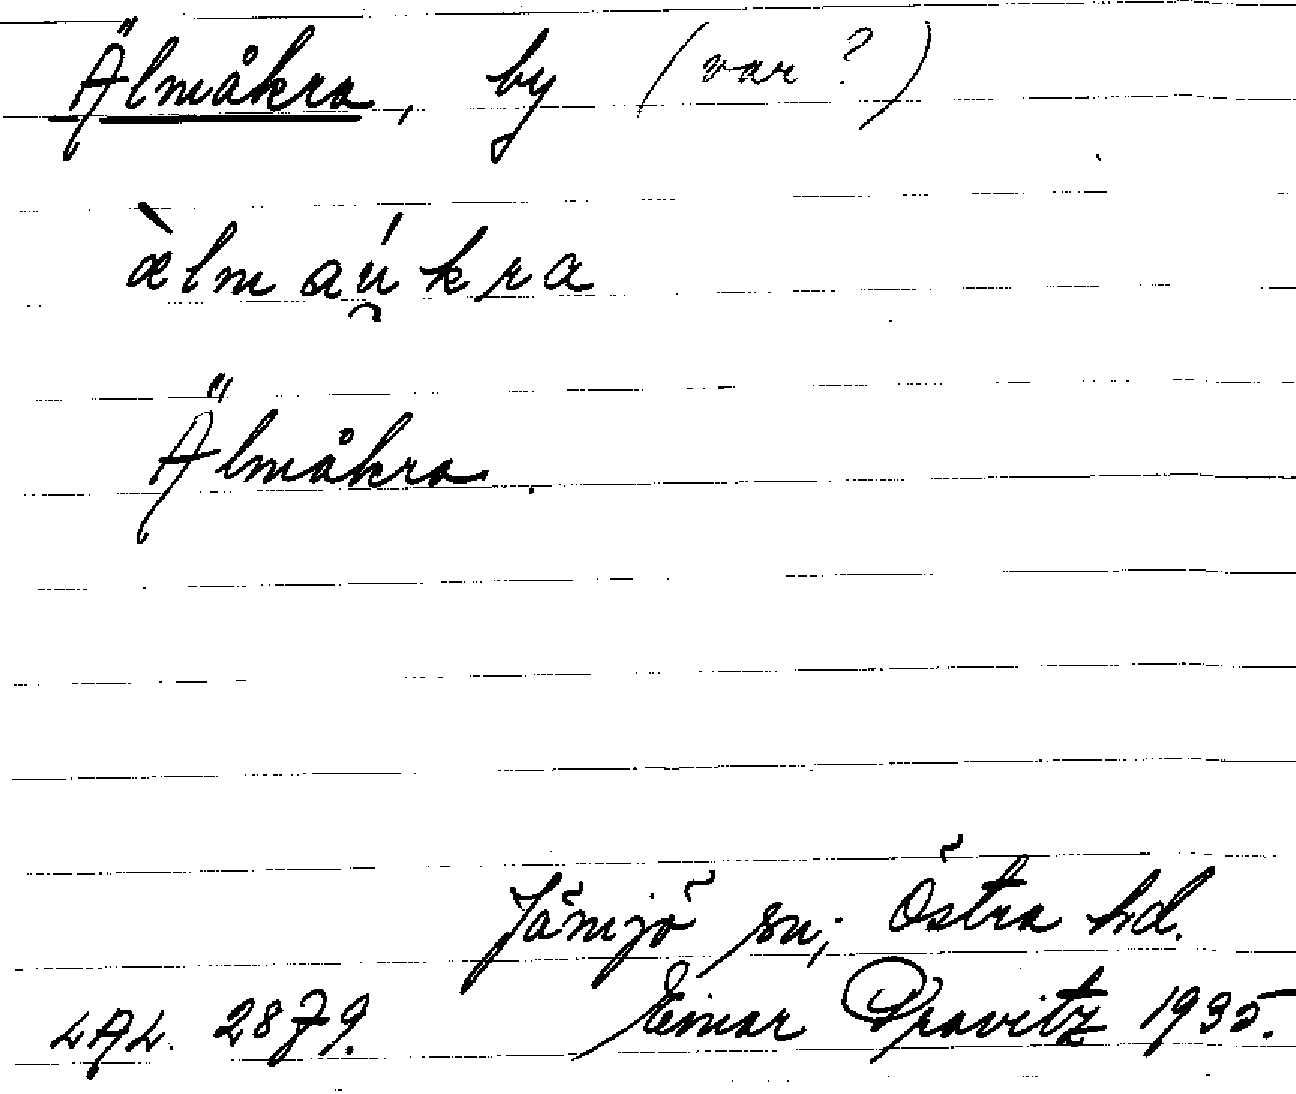 Älmåkra, by (var?)
æ̀lmaú̯kra
Älmåkra.
Jämjö sn; Östra hd.
LAL. 2879. Einar Pravitz 1935.